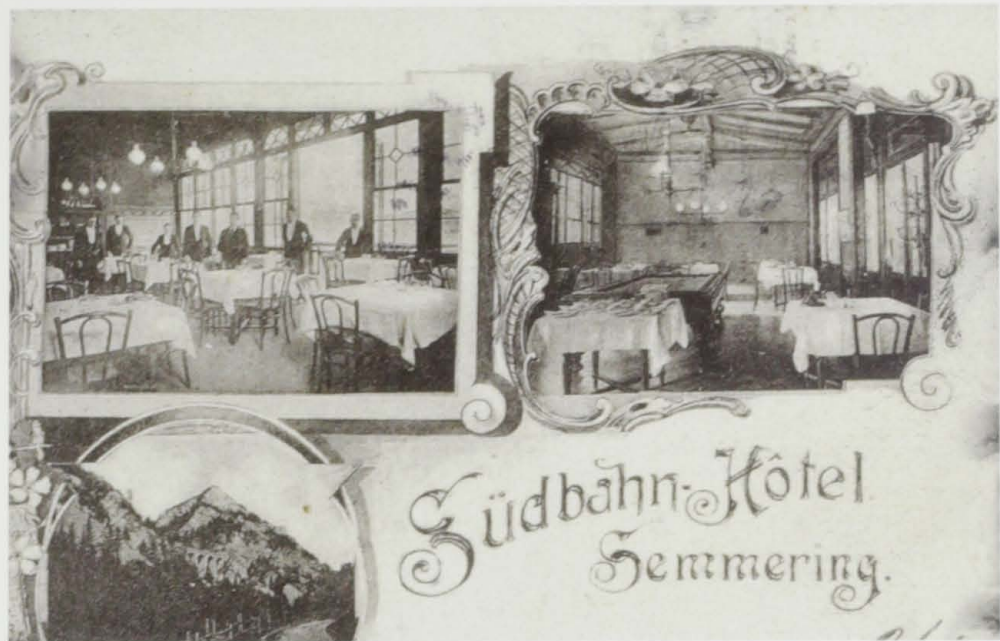 Südbahn-Hôtel
Semmering.